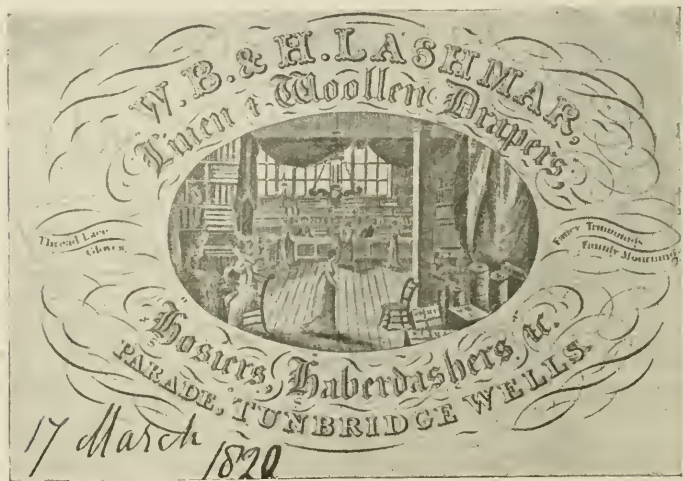 W. B. & H. LASHMAR,
Linen & Woollen Drapers,
Thread Lace
Gloves
Fancy Trimmings
Family Mourning
Hosiers, Haberdashers, &c.
PARADE, TUNBRIDGE WELLS.
17 March
1820